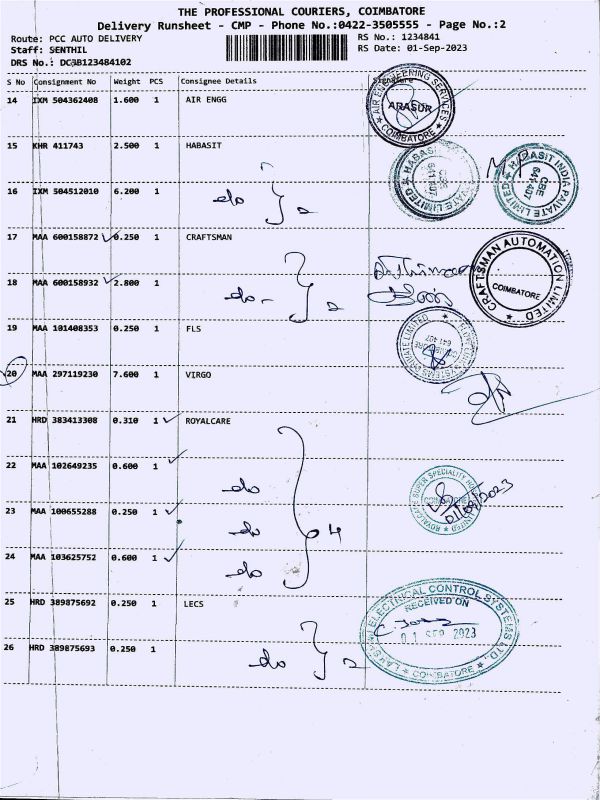 THE PROFESSIONAL COURIERS, COIMBATORE
Delivery Runsheet - CMP - Phone No.:0422-3505555 - Page No.:2
Route: PCC AUTO DELIVERY
RS No.: 1234841
Staff: SENTHIL
RS Date: 01-Sep-2023
DRS No.: DCAB123484102
S No Consignment No Weight PCS Consignee Details Signature
14 IXM 504362408 1.600 1 AIR ENGG
AIR ENGINEERING SERVICES
ARASUR
COIMBATORE
15 KHR 411743 2.500 1 HABASIT
HABASIT INDIA PRIVATE LIMITED
CBE
641 407
16 IXM 504512010 6.200 1 do } 2
17 MAA 600158872 0.250 1 CRAFTSMAN
CRAFTSMAN AUTOMATION LIMITED
COIMBATORE
18 MAA 600158932 2.800 1 do } 2
19 MAA 101408353 0.250 1 FLS
641 407
20 MAA 297119230 7.600 1 VIRGO
21 HRD 383413308 0.310 1 ROYALCARE
22 MAA 102649235 0.600 1 do
ROYALCARE SUPER SPECIALITY
LIMITED
COIMBATORE
01/09/2023
23 MAA 100655288 0.250 1 do } 4
24 MAA 103625752 0.600 1 do
25 HRD 389875692 0.250 1 LECS
ELECTRICAL CONTROL SYSTEMS
RECEIVED ON
01 SEP 2023
COIMBATORE
26 HRD 389875693 0.250 1 do } 2